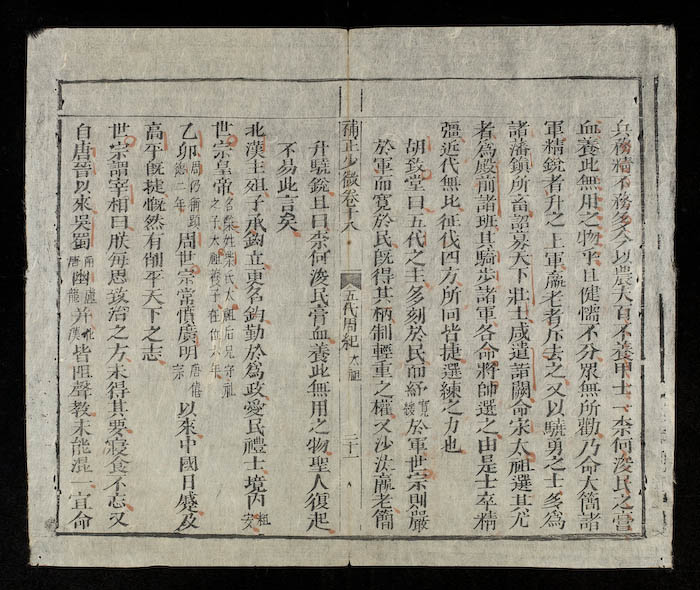 兵務精不務多今以農夫百不養甲士一奈何浚民之膏
血養此無用之物乎且健懦不分眾無所勸乃命大簡諸
軍精銳者升之上軍羸老者斥去之又以驍勇之士多爲
諸藩鎮所畜詔募天下壯士咸遣詣闕命宋太祖選其尤
者爲殿前諸班其騎步諸軍各命將帥選之由是士卒精
彊近代無比征伐四方所向皆捷選練之力也
胡致堂曰五代之主多刻於民而紓寬緩於軍世宗則嚴
於軍而寬於民旣得其柄制輕重之權又沙汰羸老簡
補正少微卷十八 五代周紀 太祖 二十一
升驍銳且曰奈何浚民膏血養此無用之物聖人復起
不易此言矣
北漢主殂子承鈞立更名鈞勤於爲政愛民禮士境內粗安
世宗皇帝名榮姓柴氏太祖后兄守禮之子太祖養子在位六年
乙卯周仍稱顯德二年周世宗常憤廣明唐僖宗以來中國日蹙及
高平旣捷慨然有削平天下之志
世宗謂宰相曰朕每思致治之方未得其要寢食不忘又
自唐晉以來吳蜀幽并皆阻聲教未能混一宜命